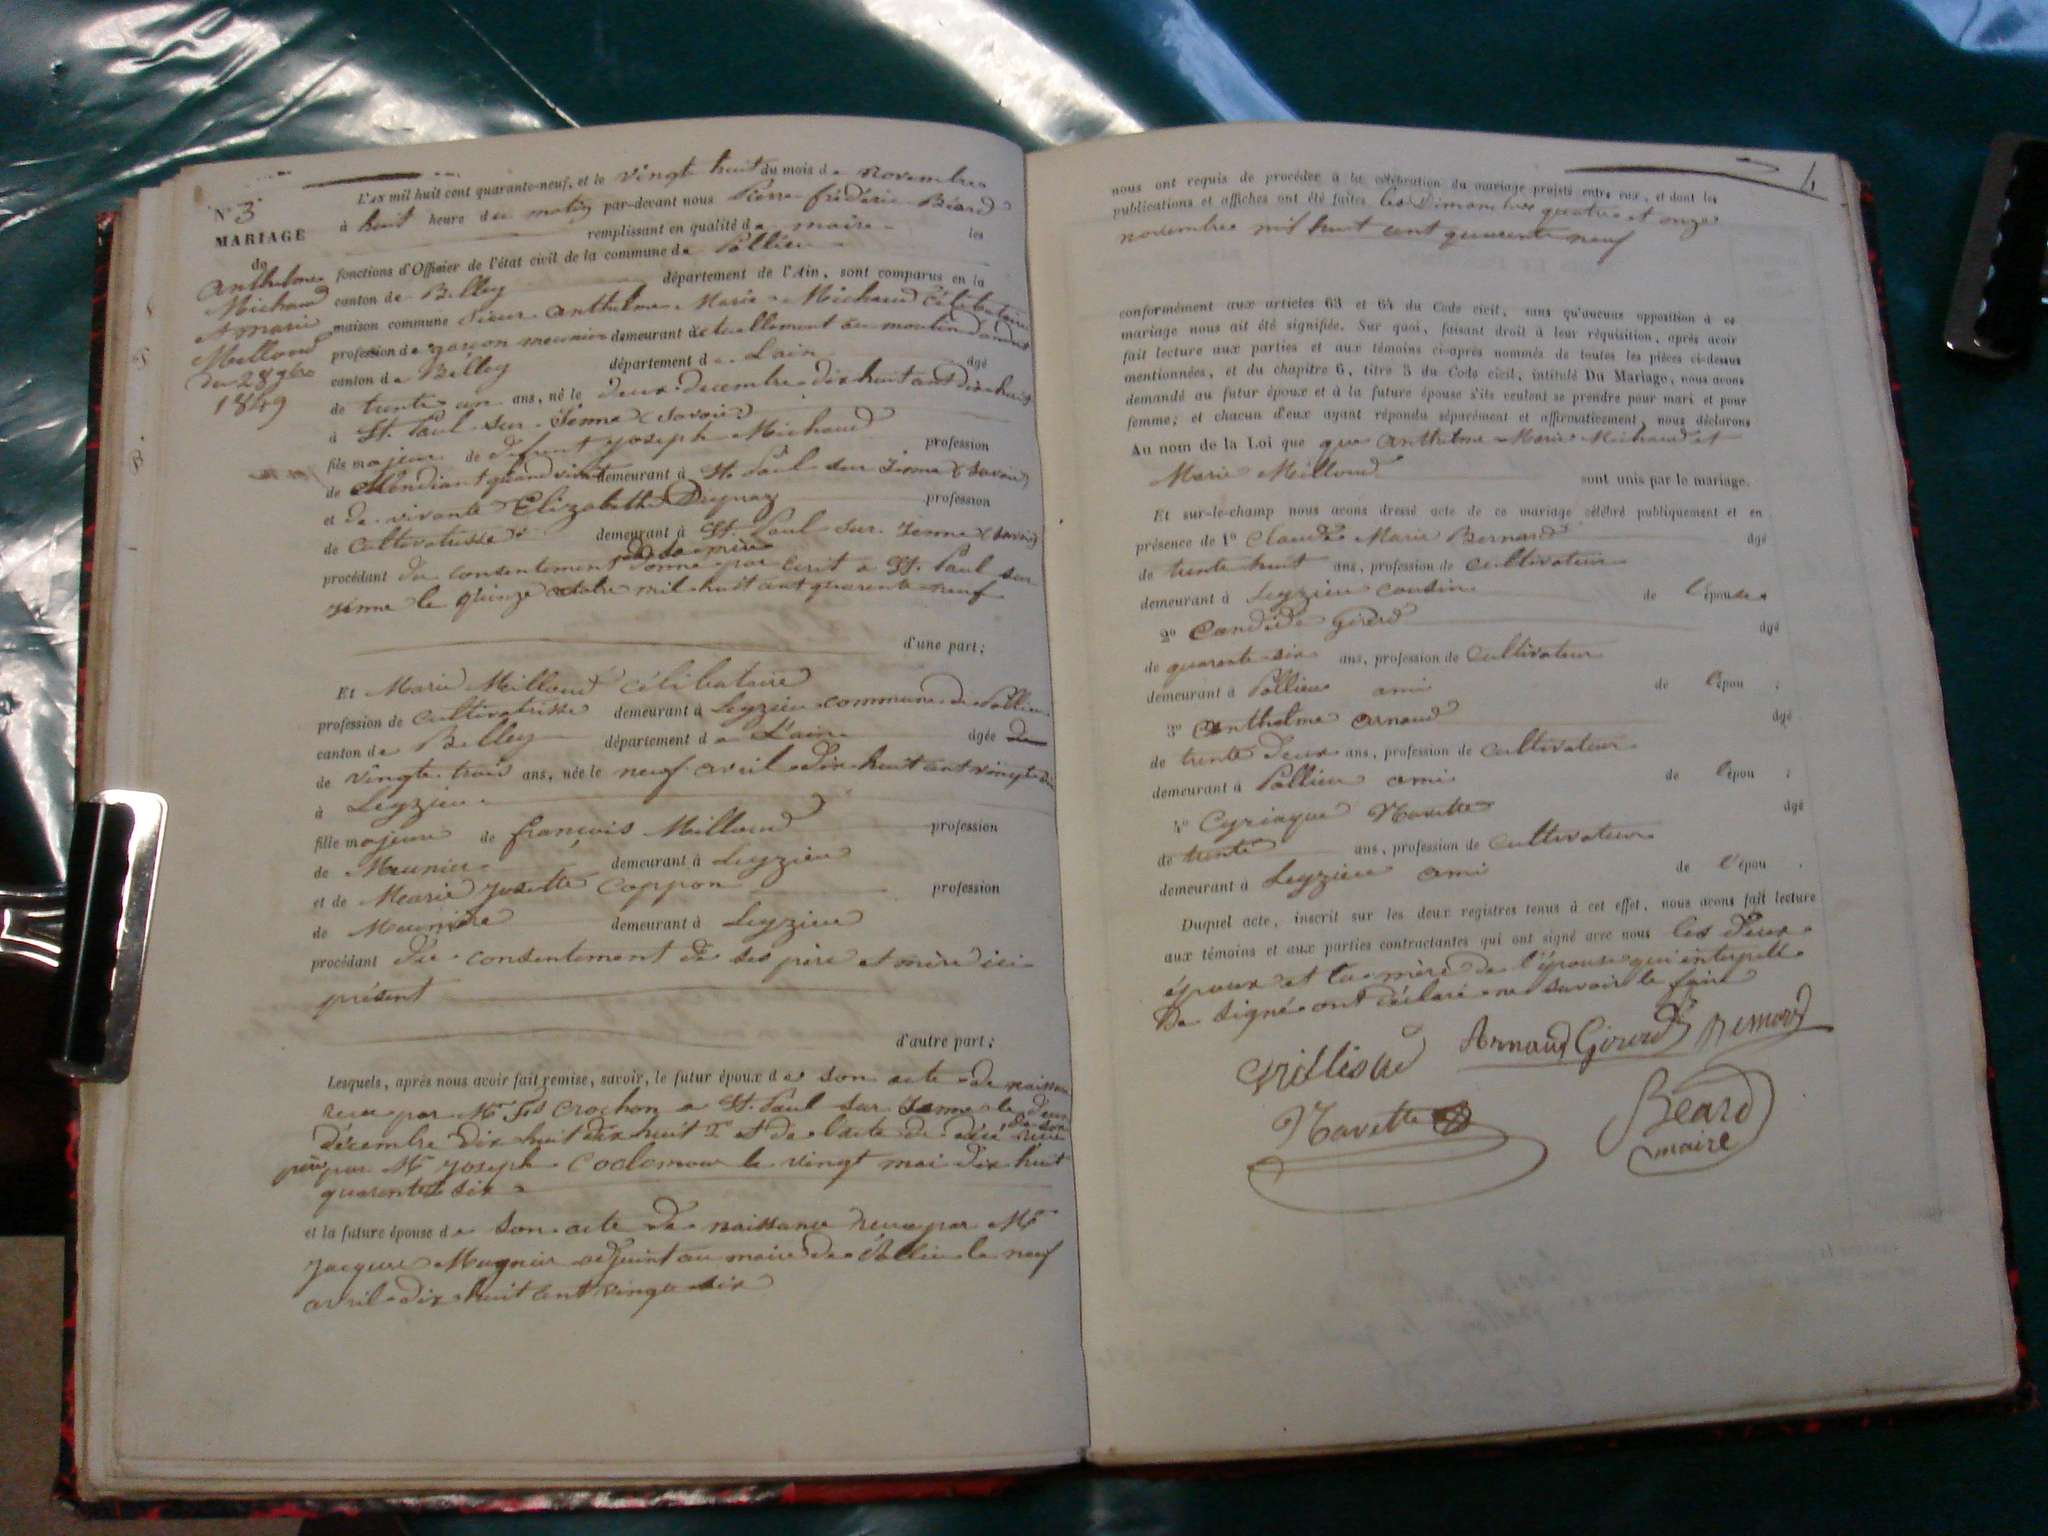 N° 3
MARIAGE
de
Anthelme
Michaud
& marie
Milloud
du 28 9bre
1849
L'AN mil huit cent quarante-neuf, et le vingt huit du mois de novembre
à huit heure du matin par-devant nous Pierre frédéric Béard
remplissant en qualité de maire les
fonctions d'Officier de l'état civil de la commune de Pollieu
canton de Belley département de l'Ain, sont comparus en la
maison commune sieur Anthelme Marie Michaud célibataire
profession de garçon meunier demeurant actuellement au moulin
canton de Belley département de L'ain âgé
de trente un ans, né le deux decembre dix huit cent dix huit
à St. Paul sur Yenne (Savoie)
fils majeur de defunt joseph Michaud profession
de Mendiant quand vivait demeurant à St. Paul sur Yenne (Savoie)
et de vivante Elizabeth Dupraz profession
de Cultivatrisse demeurant à St. Paul sur Yenne (Savoie)
procédant du consentement de sa mère donné par écrit a St. Paul sur
Yenne le quinze octobre mil huit cent quarante neuf
d'une part;
Et Marie Milloud célibataire
profession de cultivatrisse demeurant à Leyzieu commune de Pollieu
canton de Belley département de L'ain âgée de
de vingte trois ans, née le neuf avril dix huit cent vingte six
à Leyzieu
fille majeure de françois Milloud profession
de Meunier demeurant à Leyzieu
et de Mearie josette Coppon profession
de Meunière demeurant à Leyzieu
procédant du consentement de ses père et mère ici
présent
d'autre part;
Lesquels, après nous avoir fait remise, savoir, le futur époux de son acte de naissance
recu par Mr. Crochon a St. Paul sur Yenne le deux
décembre dix huit dix huit et de l'acte de décé de son
père par Mr joseph le vingt mai dix huit
quarante six
et la future épouse de son acte de naissance recu par Mr
jacques Mugnier adjoint au maire de Pollieu le neuf
avril dix huit cent vingte six
4
nous ont requis de procéder à la célébration du mariage projeté entre eux, et dont les
publications et affiches ont été faites les Dimanches quatre et onze
novembre mil huit cent quarante neuf
conformément aux articles 63 et 64 du Code civil, sans qu'aucune opposition à ce
mariage nous ait été signifiée. Sur quoi, faisant droit à leur réquisition, après avoir
fait lecture aux parties et aux témoins ci-après nommés de toutes les pièces ci-dessus
mentionnées, et du chapitre 6, titre 5 du Code civil, intitulé Du Mariage, nous avons
demandé au futur époux et à la future épouse s'ils veulent se prendre pour mari et pour
femme; et chacun d'eux ayant répondu séparément et affirmativement, nous déclarons
Au nom de la Loi que que Anthelme Marie Michaud et
Marie Milloud sont unis par le mariage.
Et sur-le-champ nous avons dressé acte de ce mariage célébré publiquement et en
présence de 1° Claude Marie Bernard âgé
de trente huit ans, profession de cultivateur
demeurant à Leyzieu cousin de l'épouse
2° Candide Girerd âgé
de quarante six ans, profession de cultivateur
demeurant à Pollieu ami de l'épou ;
3° Anthelme Arnaud âgé
de trente deux ans, profession de cultivateur
demeurant à Pollieu ami de l'épou ;
4° Cyriaque Navette âgé
de trente ans, profession de cultivateur
demeurant à Leyzieu ami de l'épou .
Duquel acte, inscrit sur les deux registres tenus à cet effet, nous avons fait lecture
aux témoins et aux parties contractantes qui ont signé avec nous les deux
époux et la mère de l'épouse qui interpellé
De signé ont déclaré ne savoir le faire
Arnaud Girerd Bernard
Navette
Béard
maire